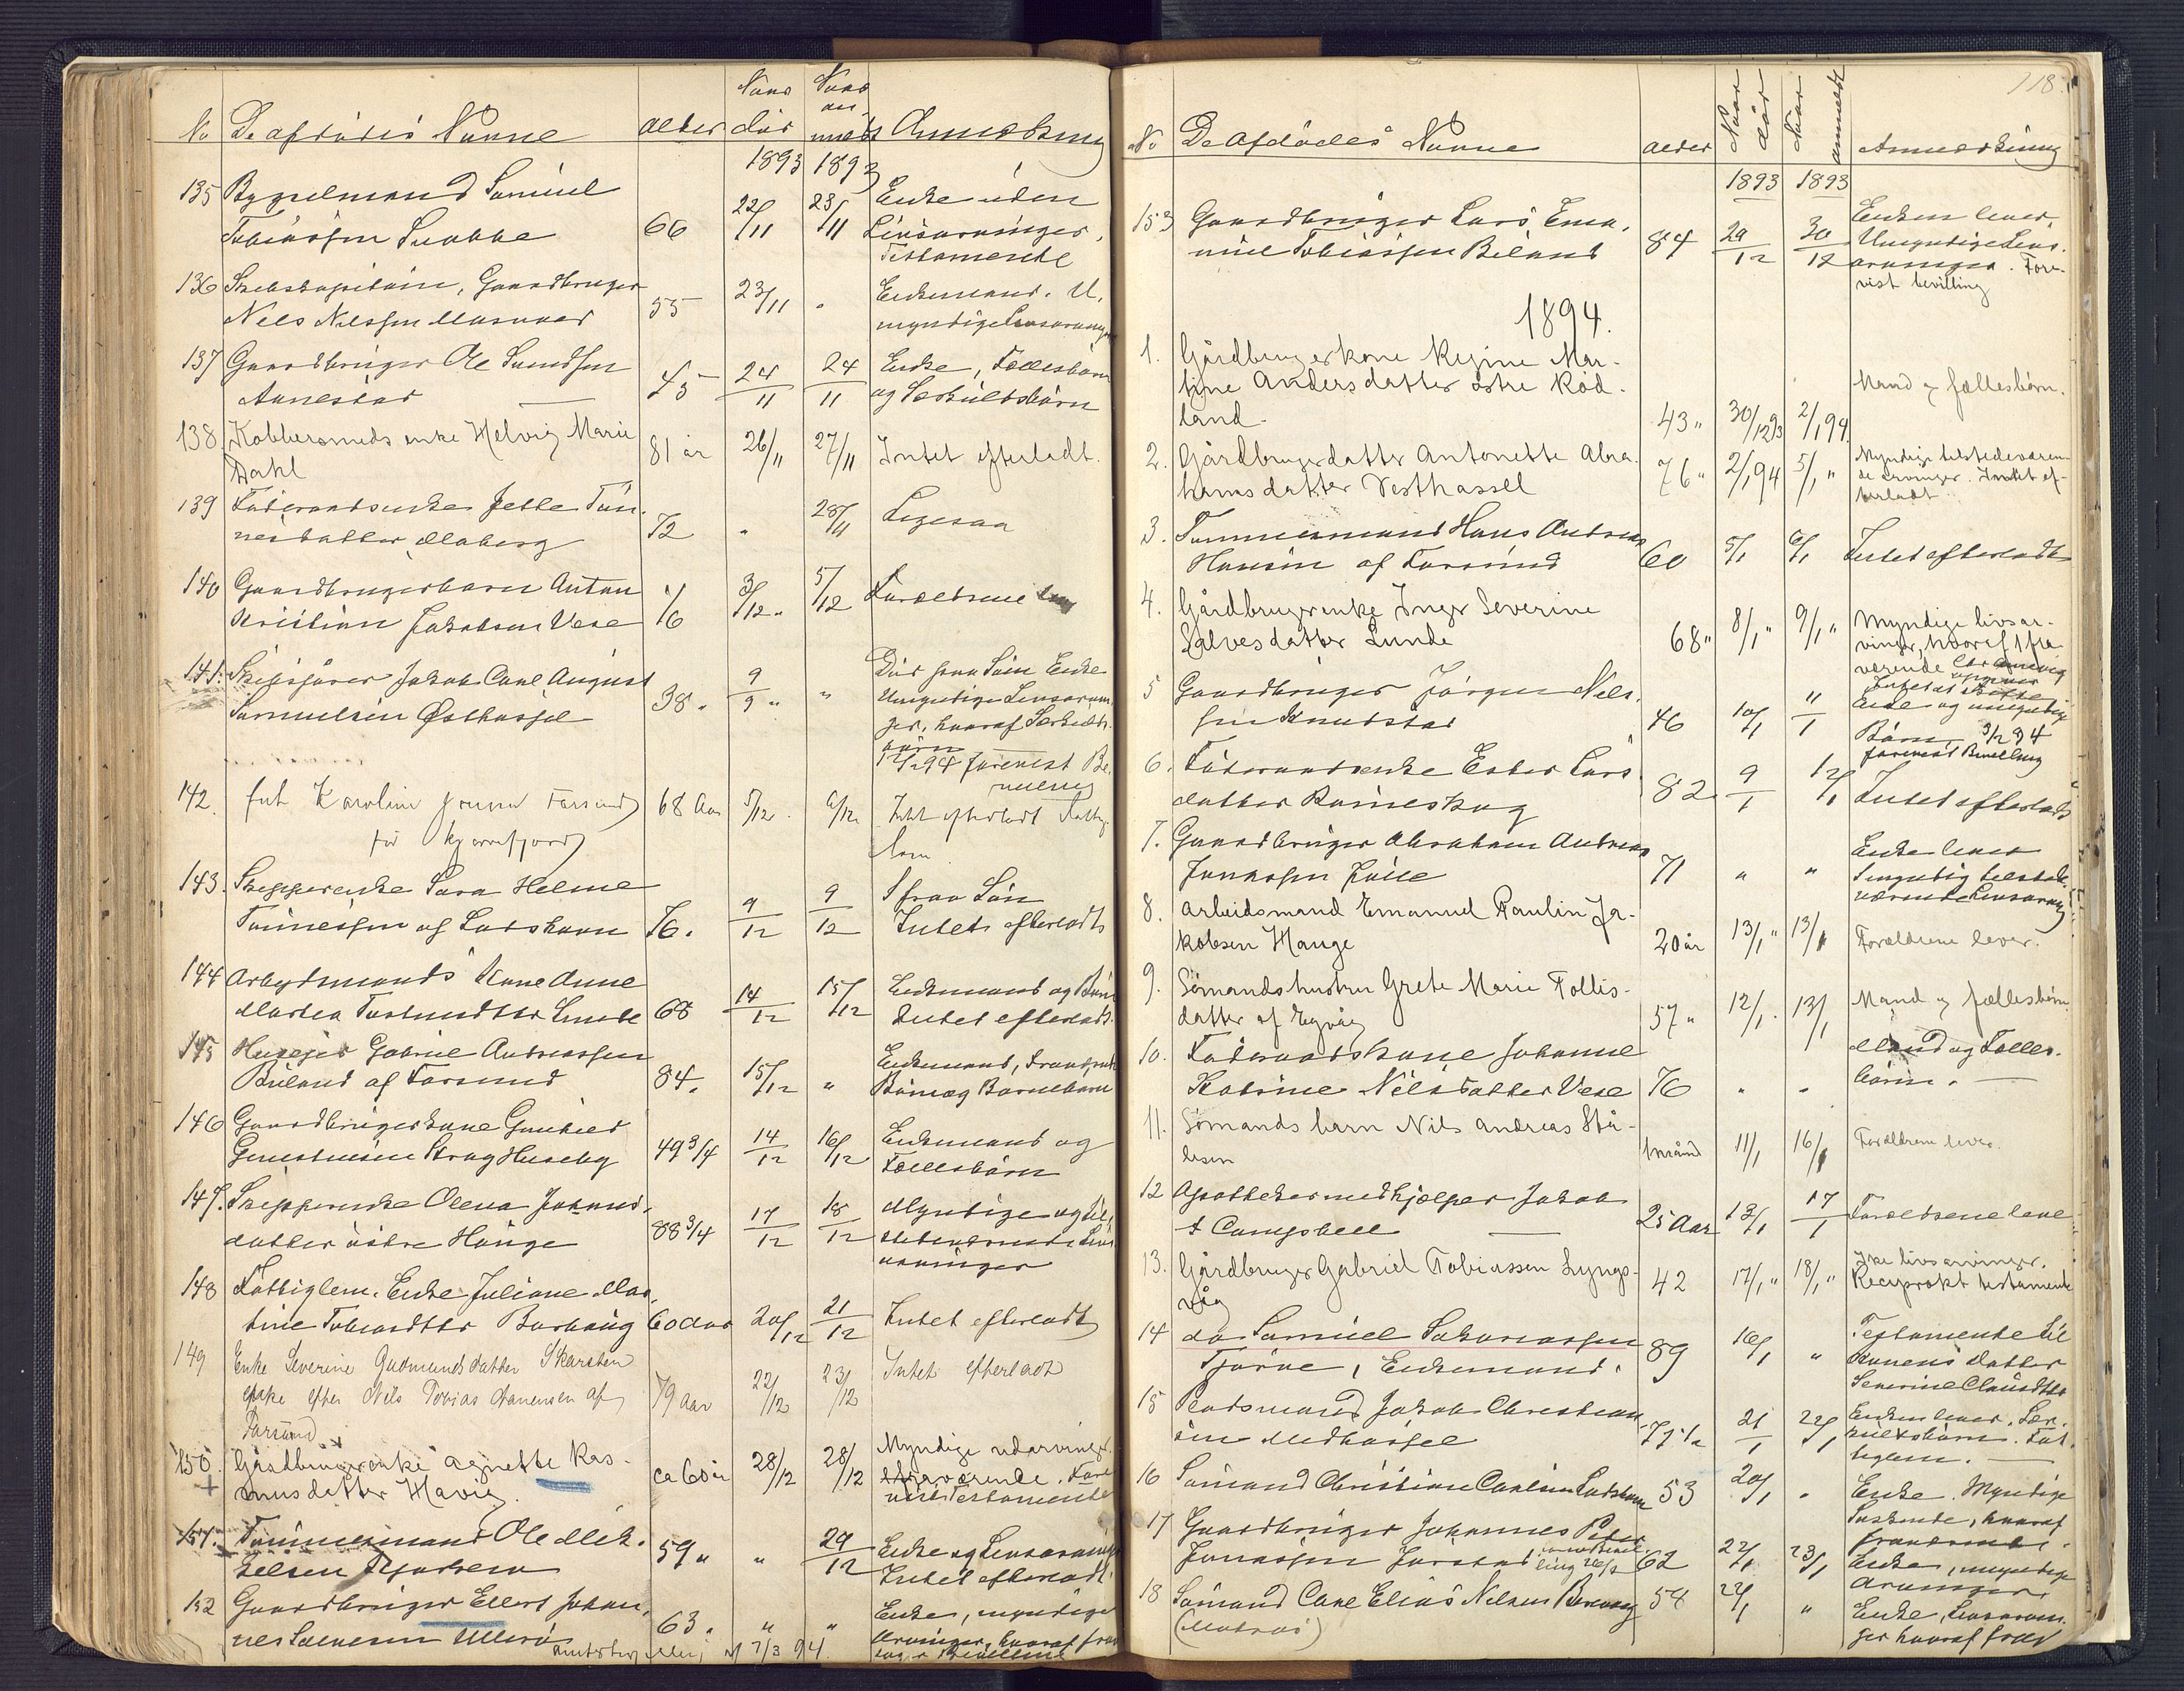 No De afdødes Navne alder Naar dör Naar anmeldt Anmærkning
1893 1893
135 Bygselmand Samuel
Tobiassen Snekke 66 22/11 23/11 Enke uden
Livsarvinger,
Testamente
136 Skibskaptein, Gaardbruger
Nels Nelssen 55 23/11 " Enkemand. U,
myndige Livsarvinger
137 Gaardbruger Ole Svendsen
Aanestad 45 24/11 24/11 Enke, Fællesbörn
og Særkuldsbörn
138. Kobbersmeds enke Helvig Marie
Dahl 81 år 26/11 27/11 Intet efterladt.
139 Föderaadsenke Jelle Tön-
nesdatter Aaberg 72 " 28/11 Ligesaa
140 Gaardbrugerbarn Anton
Kristian Jakobsen Vere 1/6 3/12 " 5/12 Forældrene
141. Skibsfører Jakob Carl August
Samuelsen Østhassel 38 " 9/9 " " Dör paa Söen Enke
Umyndige Livsarvin-
ger, hvoraf Særkulds-
börn
12/2 94 forevist Be-
villing
142. frk Karoline Farsund
før Kjørrefjord 68 Aar 5/12 6/12 Intet efterladt Fattig-
lem.
143. Skipperenke Sara Helene
Tönnessen af Loshavn 76. 9/12 9/12 1 frav Sön
Intet efterladt
144 Arbeidsmands Kone Anne
Martea Tostensdtr Lunde 68 14/12 15/12 Enkemand og Börn
Intet efterladt.
145 Huseier Gabriel Andreassen
Briland af Farsund 84. 15/12 " Enkemand,
Börn og Barnebörn
146 Gaardbrugerkone Gunhild
Huseby 49 3/4 14/12 16/12 Enkemand og
Fællesbörn
147. Skipperenke Olena Johans-
datter östre Hauge 88 3/4 17/12 18/12 Myndige og til-
stedeværende Livs
arvinger
148 Fattiglem. Enke Juliane Mar-
tine Tobiasdtr Borhaug 60 aar 20/12 21/12 Intet efterladt
149 Enke Severine Gudmundsdatter Skarsten
enke efter Nils Tobias af
Farsund 79 aar 22/12 23/12 Intet efterladt
150. Gårdbrugerenke Agnette Ras-
musdatter Havig. ca 60 år 28/12 28/12 Myndige udarvinger
fraværende. Fore
vist Testamente
151. Tömmermand Ole Mik-
kelsen 59 " " 29/12 Enke og Livsarvinger
Intet efterladt.
152 Gaardbruger Ellert Johan-
nes Salvesen Ullerö 63. " " Enke, myndige
Arvinger, hvoraf frav
7/3 94. Bevilling
118.
No De Afdödes Navne alder Naar dör Naar anmeldt Anmærkning
1893 1893
153 Gaardbruger Lars Ema-
nuel Tobiassen Beland 84 29/12 30/12 Enken lever.
Umyndige Livs-
arvinger. Fore-
vist bevilling
1894.
1. Gårdbrugerkone Regine Mar-
tine Andersdatter östre Röd-
land. 43 " 30/12 93 2/1 94. Mand og fællesbörn.
2. Gårdbrugerdatter Antonette Abra-
hamsdatter Vesthassel 76 " 2/1 94 5/1 " Myndige tilstedeværen-
de arvinger. Intet ef-
terladt
3. Tömmermand Hans Andreas
Hansen af Farsund 60 5/1 6/1 Intet efterladt
4. Gårdbrugerenke Inger Severine
Salvesdatter Lunde 68 " 8/1 " 9/1 " Myndige livsar-
vinger, hvoraf 1 fra-
værende
5 Gaardbruger Jörgen Nels-
sen Knudstad 46 10/1 11/1 Enke og umyndige
Börn 3/2 94
forevist Bevilling
6. Föderaadsenke Ester Lars-
datter Römeskog 82 9/1 12/1 Intet efterladt
7. Gaardbruger Abraham Andreas
Jonassen 71 " " Enke lever
1 myndig tilstede-
værende Livsarving
8. Arbeidsmand Emanuel Paulin Ja-
kobsen Hauge 20 år 13/1 " 13/1 Forældrene lever.
9. Sömandshustru Grete Marie Tollis-
datter af Egvåg 57 " 12/1. 13/1 Mand og fællesbörn.
10. Föderaadskone Johanne
Katrine Nilsdatter Vere 76 " " Mand og Fælles-
börn.
11. Sömands barn Nils Andreas Stå-
lesen 11/1 16/1 Forældrene lever.
12 Apothekermedhjælper Jakob
t Campbell 25 Aar 13/1 17/1 Forældrene leve
13. Gårdbruger Gabriel Tobiassen Lyngs-
våg 42 17/1 " 18/1 " Ikke livsarvinger.
Reciprokt testamente
14 do Samuel Sakariassen
Tjörve, Enkemand. 89 16/1 " Testamente til
Konens datter
Severine Claüsdtr
15 Pladsmand Jakob Christian-
sen Midhassel 77 1/2 21/1 22/1 Enken lever. Sær-
kuldsbörn. Fat-
tiglem.
16 Sömand Christian Carlsen Loshavn 53 20/1 " Enke. Myndige
Söskende, hvoraf
fraværende.
17 Gaardbruger Johannes Peter
Jonassen Jörstad 62 22/1 23/1 Enke, myndige
Arvinger
18 Sömand Carl Elias Nelsen 54 22/1 " Enke, Livsarvin-
ger hvoraf frav
(Matros)